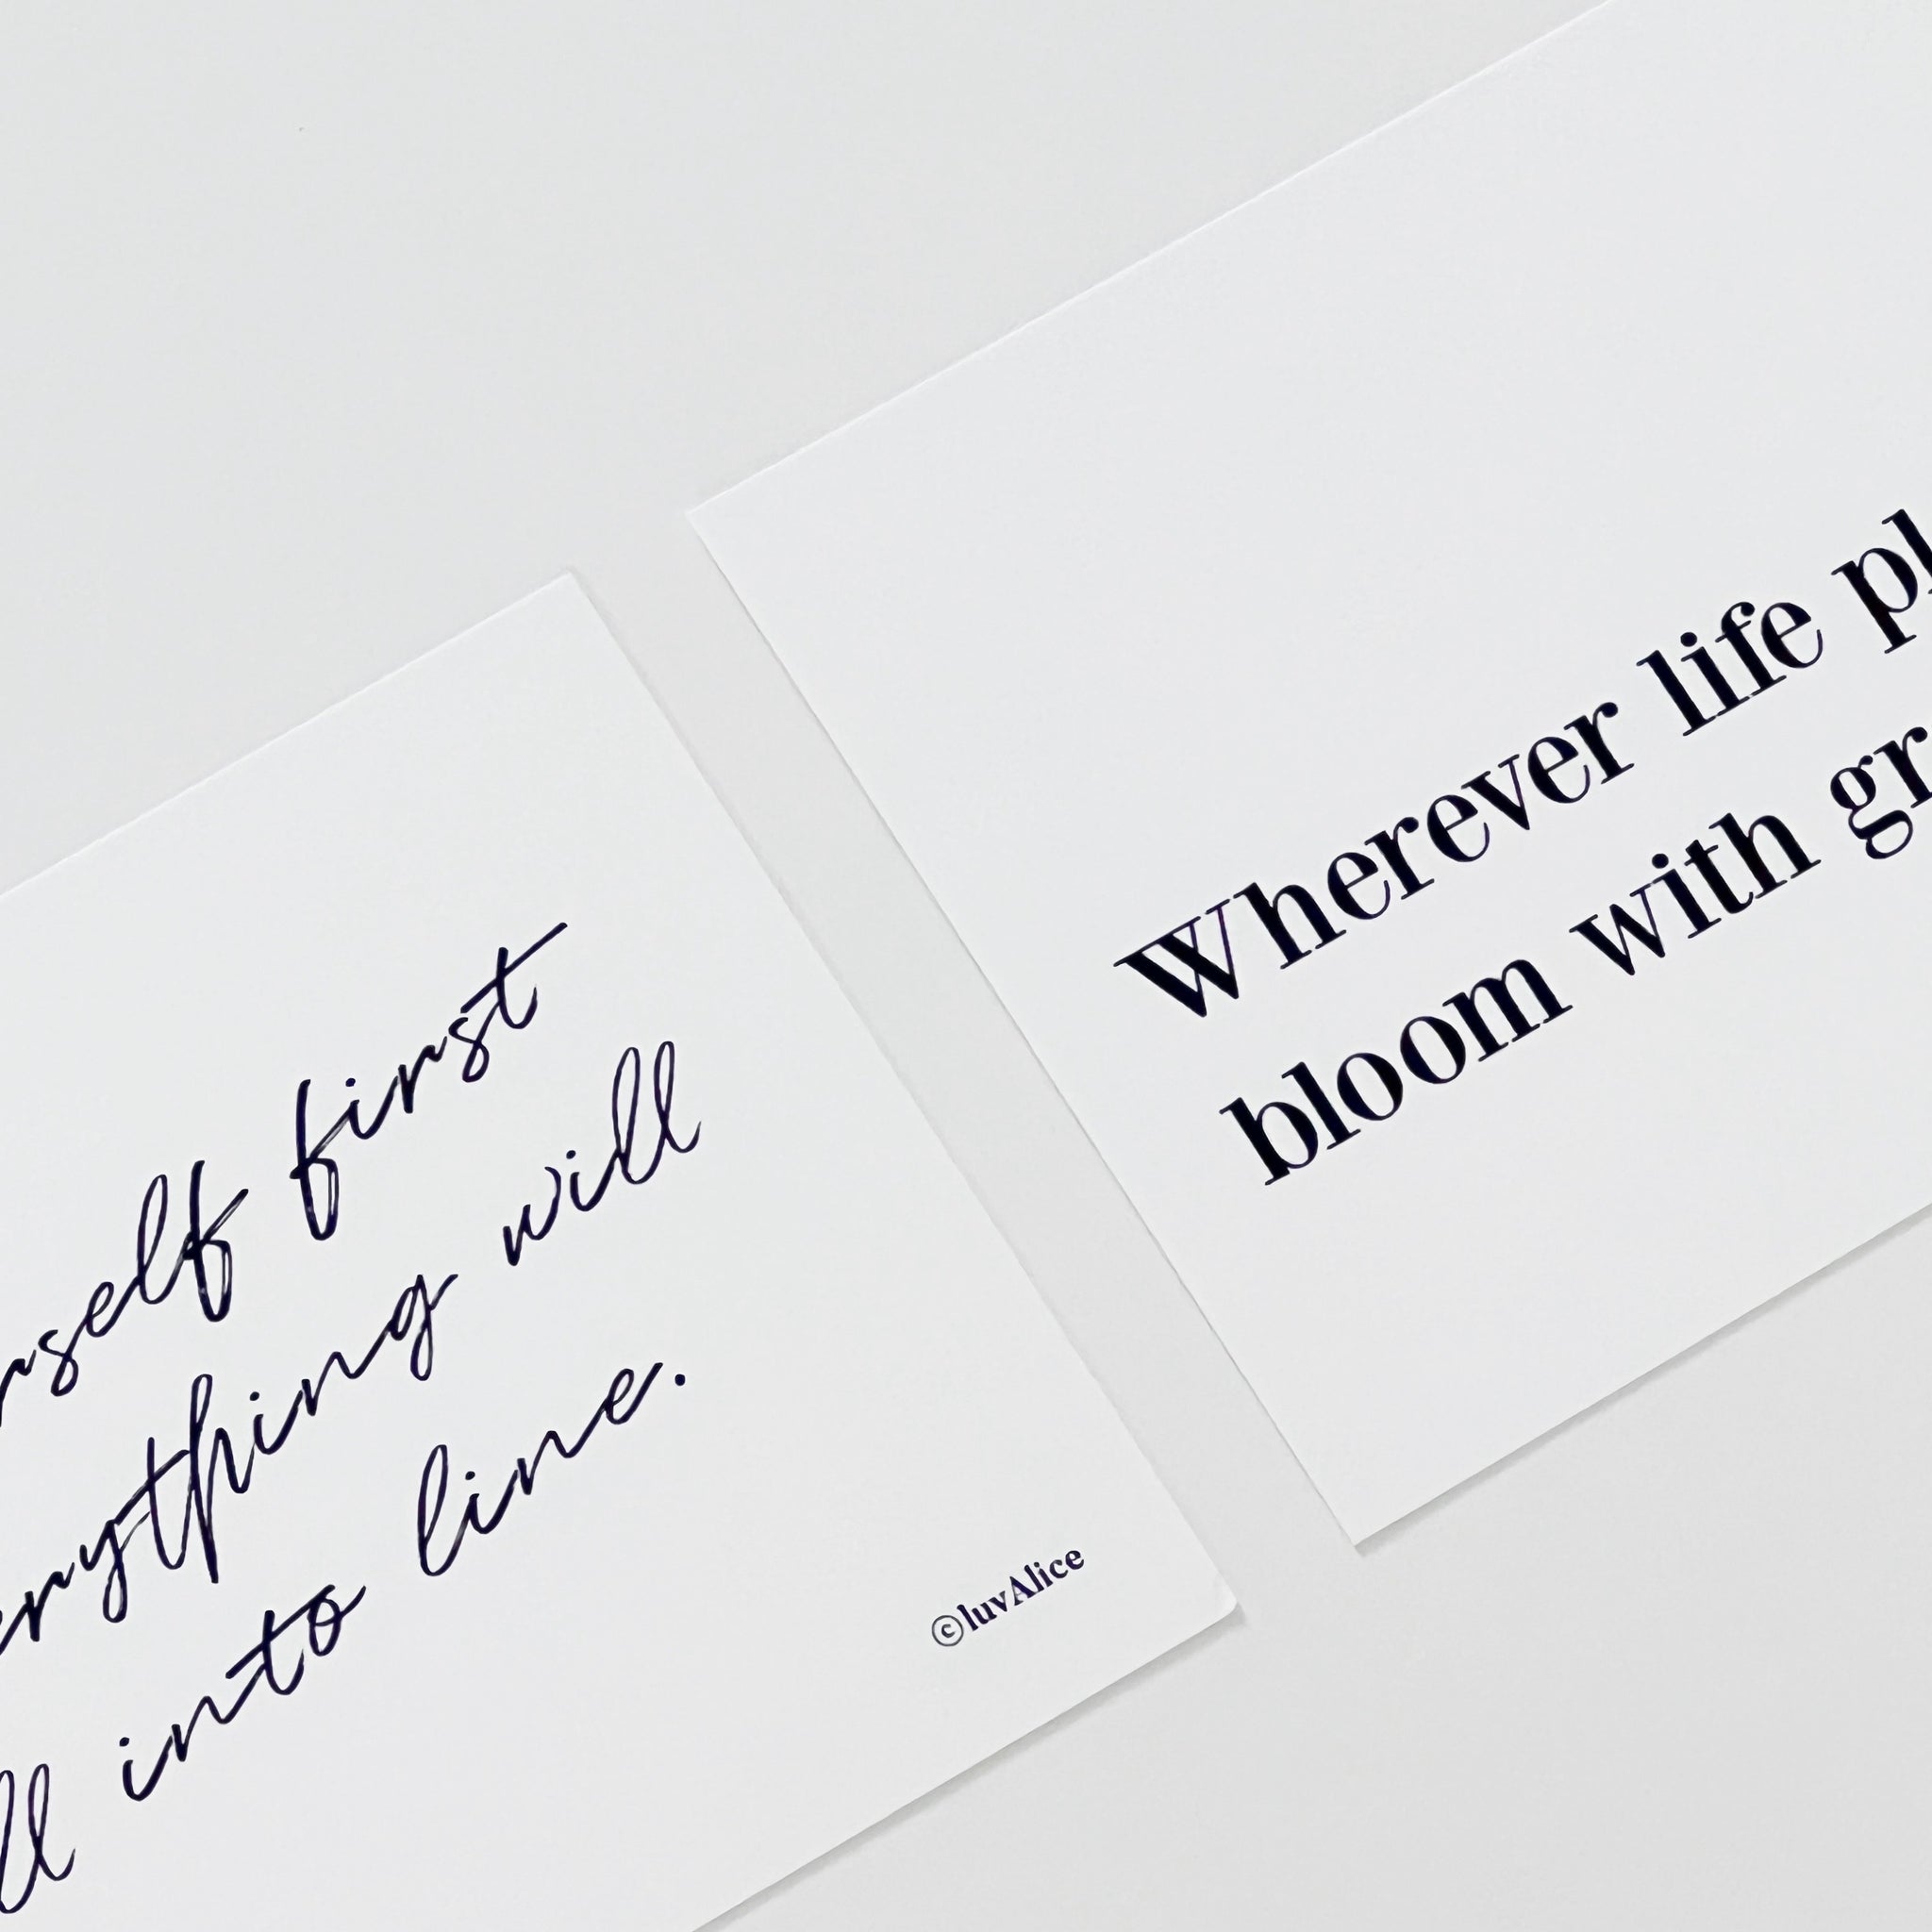 rself first
erything will
ll into line.
©luvAlice
Wherever life pl
bloom with gr